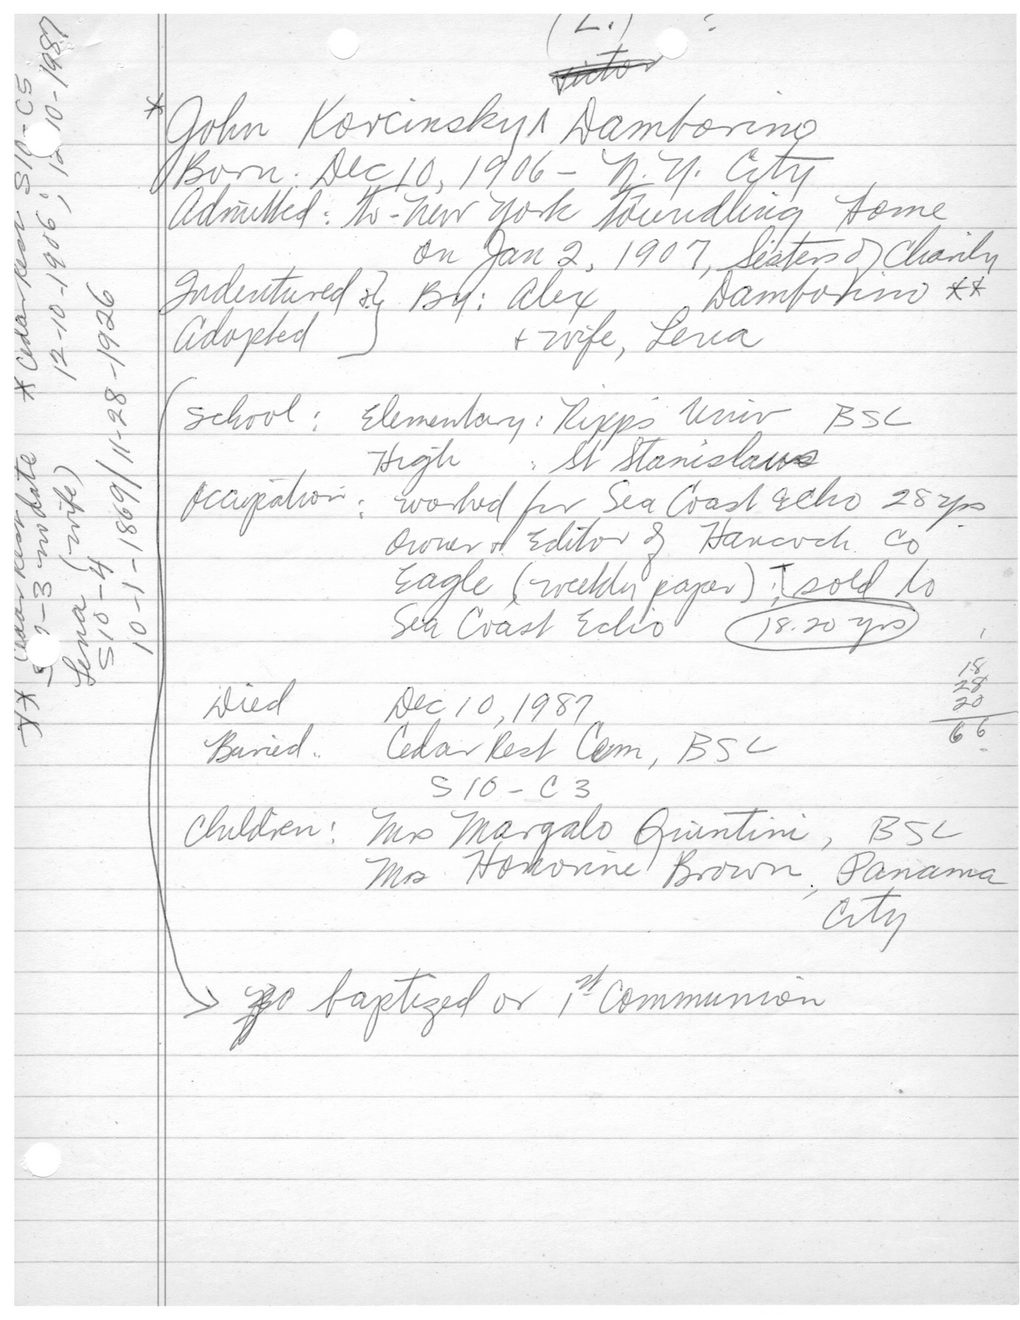 (L.) ?
Victor
* John Korcinsky ^ Damborino
Born: Dec 10, 1906 - N.Y. City
Admitted: to - New York Foundling Home
on Jan 2, 1907, Sisters of Charity
Indentured & } By: Alex Damborino **
Adopted + wife, Lena
School: Elementary: Univ BSC
High : St Stanislaus
Occupation: worked for Sea Coast Echo 28 yrs
Owner & Editor of Hancock Co
Eagle (weekly paper); sold to
Sea Coast Echo 18.20 yrs
18
28
20
66
Died Dec 10, 1987
Buried. Cedar Rest Cem, BSL
S10 - C3
Children: Mrs Margalo Quintini, BSL
Mrs Honorine Brown, Panama
City
baptized or 1st Communion
* Cedar Rest S10-C5
12-10-1906; 12-10-1987
** Cedar Rest
-3 no date
Lena (wife)
S10-4
10-1-1869/11-28-1926